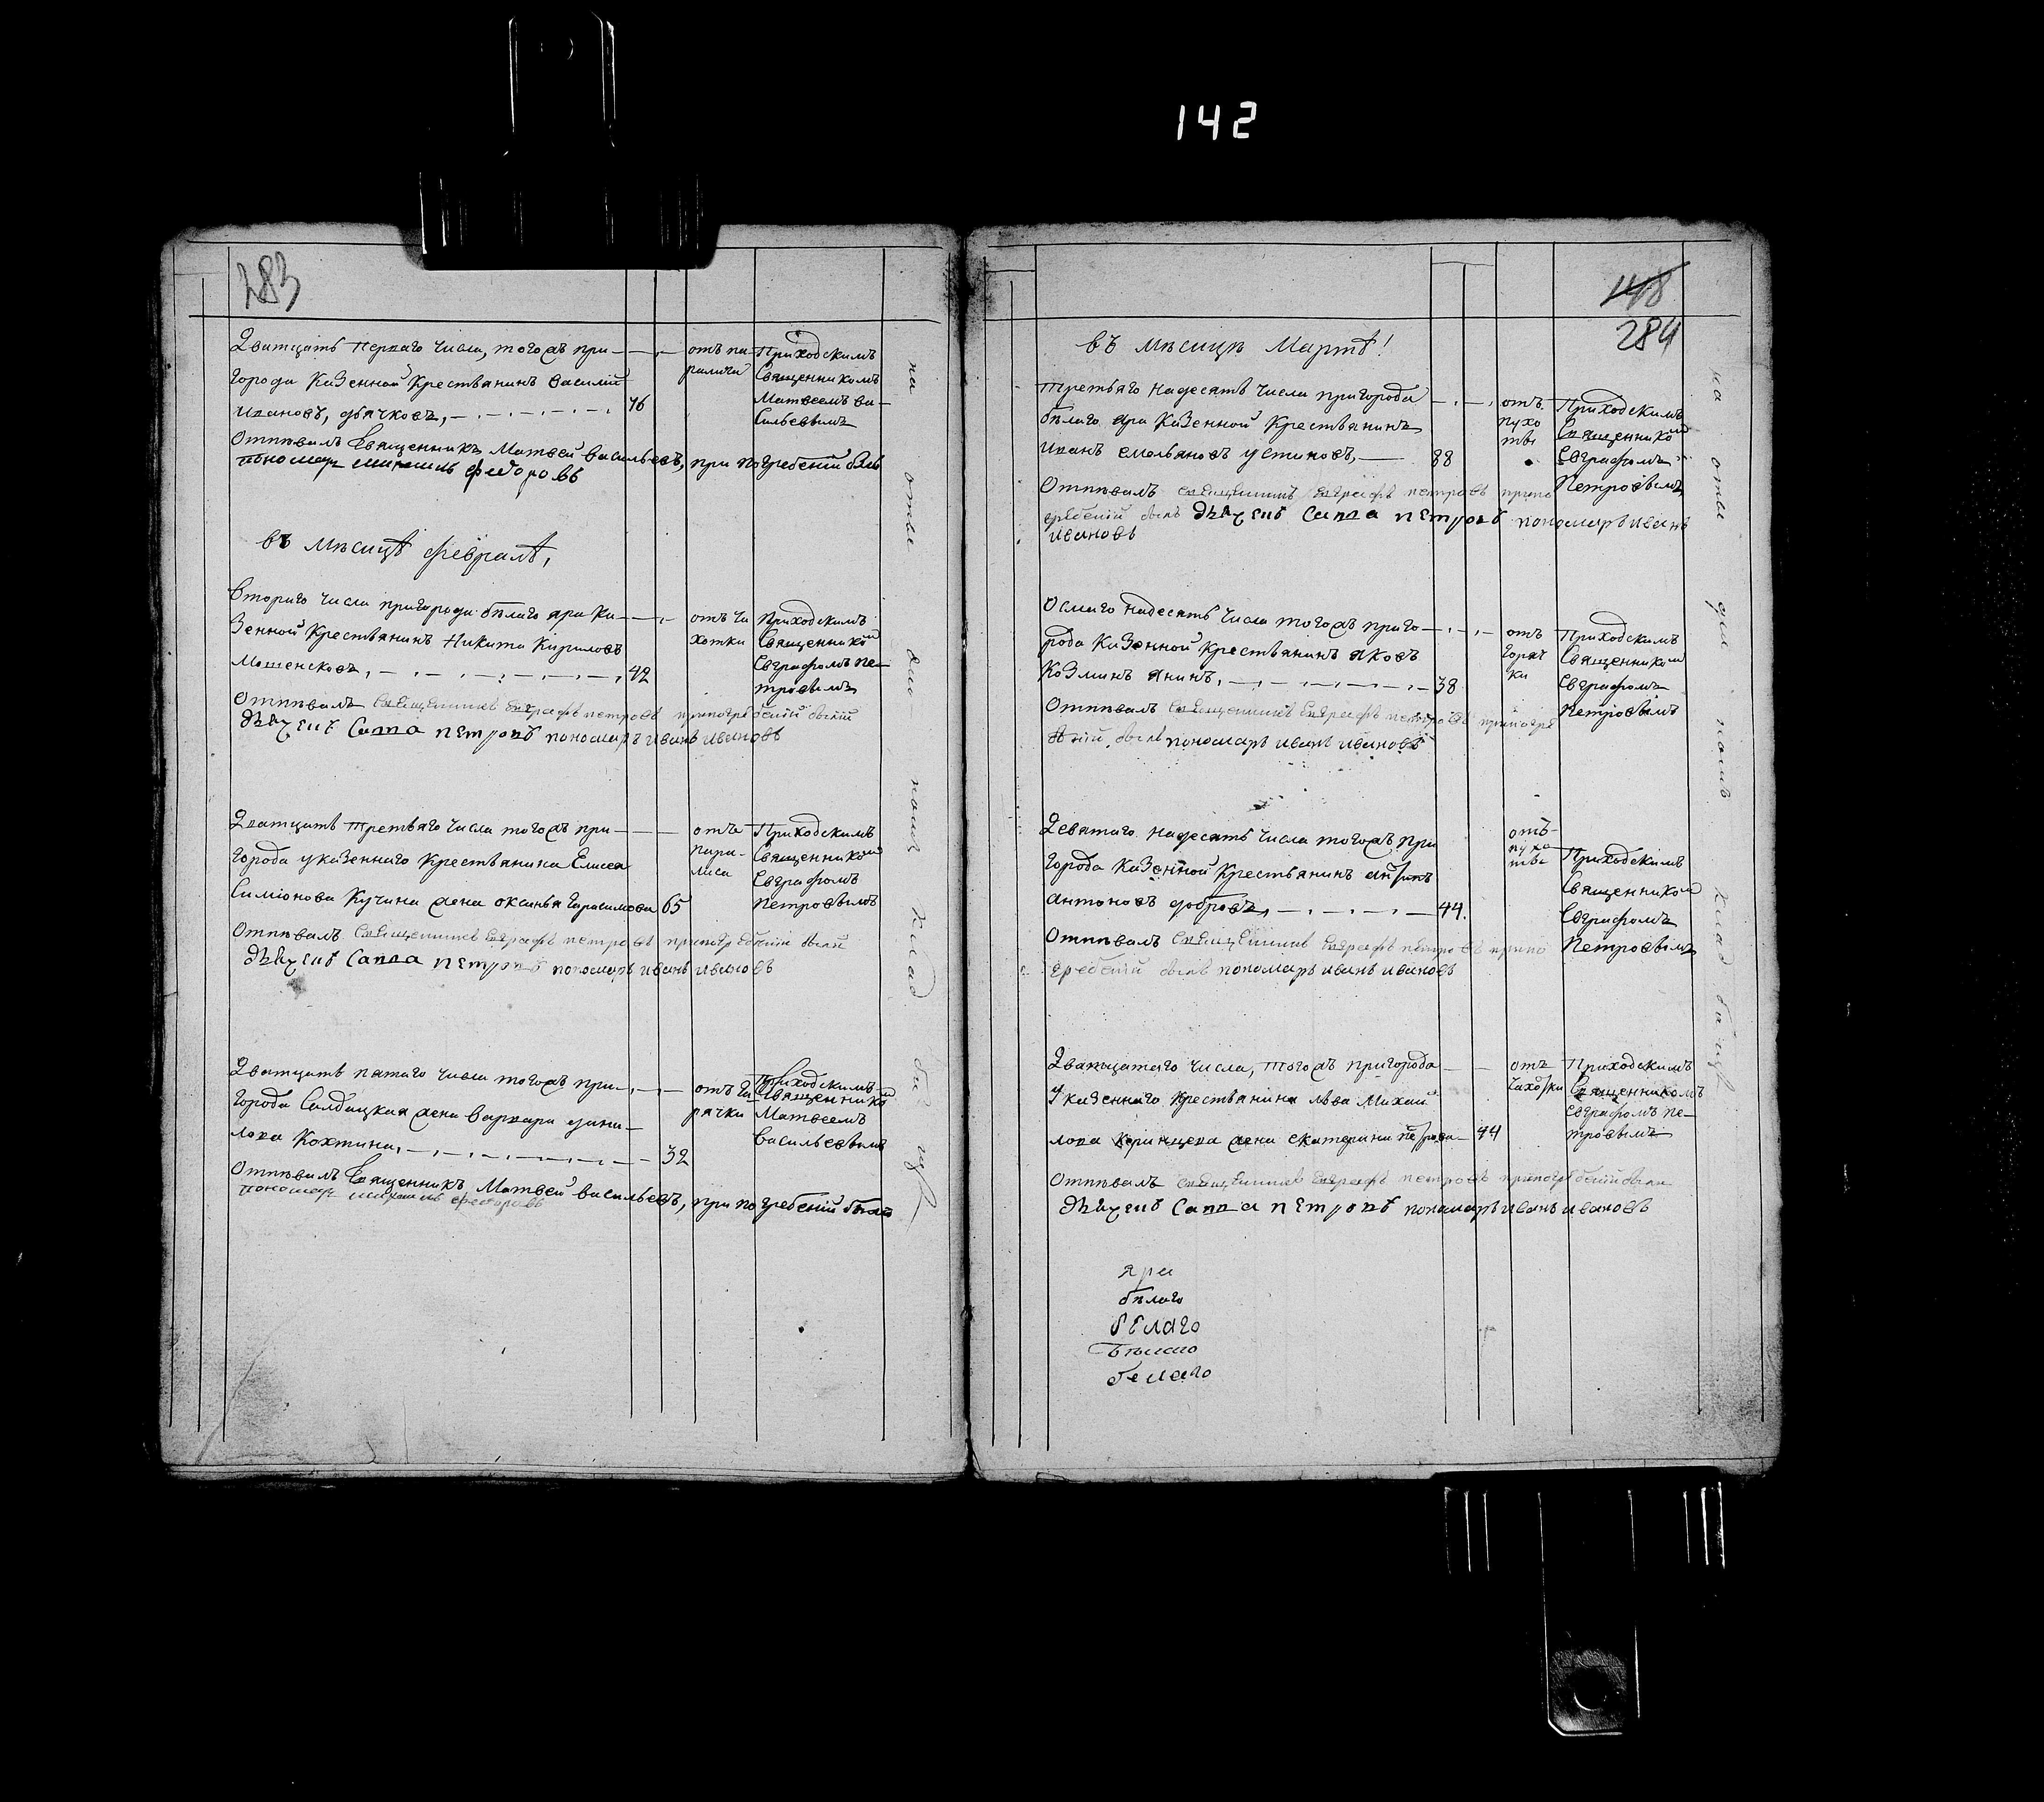 142
283
Дватцать перваго числа, тогожъ при-
города казенной крестьянинъ василий
ивановъ, дьячковъ, 76
отъ па-
ралича
Приходскимъ
Священникомъ
Матвеемъ ва-
сильевымъ
Отпѣвалъ Священникъ Матвей васильевъ, при погребении былъ
пономарь михаилъ федоровъ
въ мѣсяцѣ февралѣ,
Втораго числа пригорода бѣлаго яра ка-
зенной крестьянинъ Никита Кириловъ
Мошенсковъ, 42
отъ ча
хотки
Приходскимъ
Священникомъ
Евграфомъ пе-
тровымъ
Отпѣвалъ священникъ Евграфъ петровъ при погребении были
дьячекъ Савва петровъ пономарь иванъ ивановъ
Дватцать третьяго числа тогожъ при-
города указеннаго крестьянина Елисея
Симионова Кучина жена оксинья Гарасимова 65
отъ
пара-
лиса
Приходскимъ
Священникомъ
Евграфомъ
Петровымъ
Отпѣвалъ священникъ Евграфъ петровъ при погребении были
дьячекъ Савва петровъ пономарь иванъ ивановъ
Дватцать пятаго числа тогожъ при-
города Салдацкая жена варвара дани-
лова Кохтина, 32
отъ га
рячки
Приходскимъ
Священникомъ
Матвеемъ
васильевымъ
Отпѣвалъ Священникъ Матвей васильевъ, при погребении былъ
пономарь михаилъ федоровъ
на отве део нашъ клад би щѣ
148
284
въ мѣсяцѣ Мартѣ!
Третьяго надесять числа пригорода
бѣлаго яра казенной крестьянинъ
иванъ емельяновъ устиновъ, 88
отъ
пухо
ты
Приходскимъ
Священникомъ
Евграфомъ
Петровымъ
Отпѣвалъ священникъ Евграфъ петровъ при по
гребении были дьячекъ Савва петровъ пономарь иванъ
ивановъ
Осмаго надесять числа тогожъ приго-
рода казенной крестьянинъ яковъ
Козминъ янинъ, 38
отъ
горяч
ки
Приходскимъ
Священникомъ
Евграфомъ
Петровымъ
Отпѣвалъ священникъ Евграфъ петровъ при погре
бении былъ пономарь иванъ ивановъ
Девятаго надесять числа тогожъ при
города казенной крестьянинъ антипъ
антоновъ добровъ, 44.
отъ
пухо
ты
Приходскимъ
Священникомъ
Евграфомъ
Петровымъ
Отпѣвалъ священникъ Евграфъ петровъ при по
гребении былъ пономарь иванъ ивановъ
Дватцатаго числа, тогожъ пригорода
указеннаго крестьянина льва Михай
лова жена екатерина петрова 44
отъ
чахотки
Приходскимъ
Священникомъ
Евграфомъ пе-
тровымъ
Отпѣвалъ священникъ Евграфъ петровъ при погребении были
дьячекъ Савва петровъ пономарь иванъ ивановъ
яра
бѣлаго
бѣлаго
бѣлаго
белаго
на отве ден номъ клад би щѣ